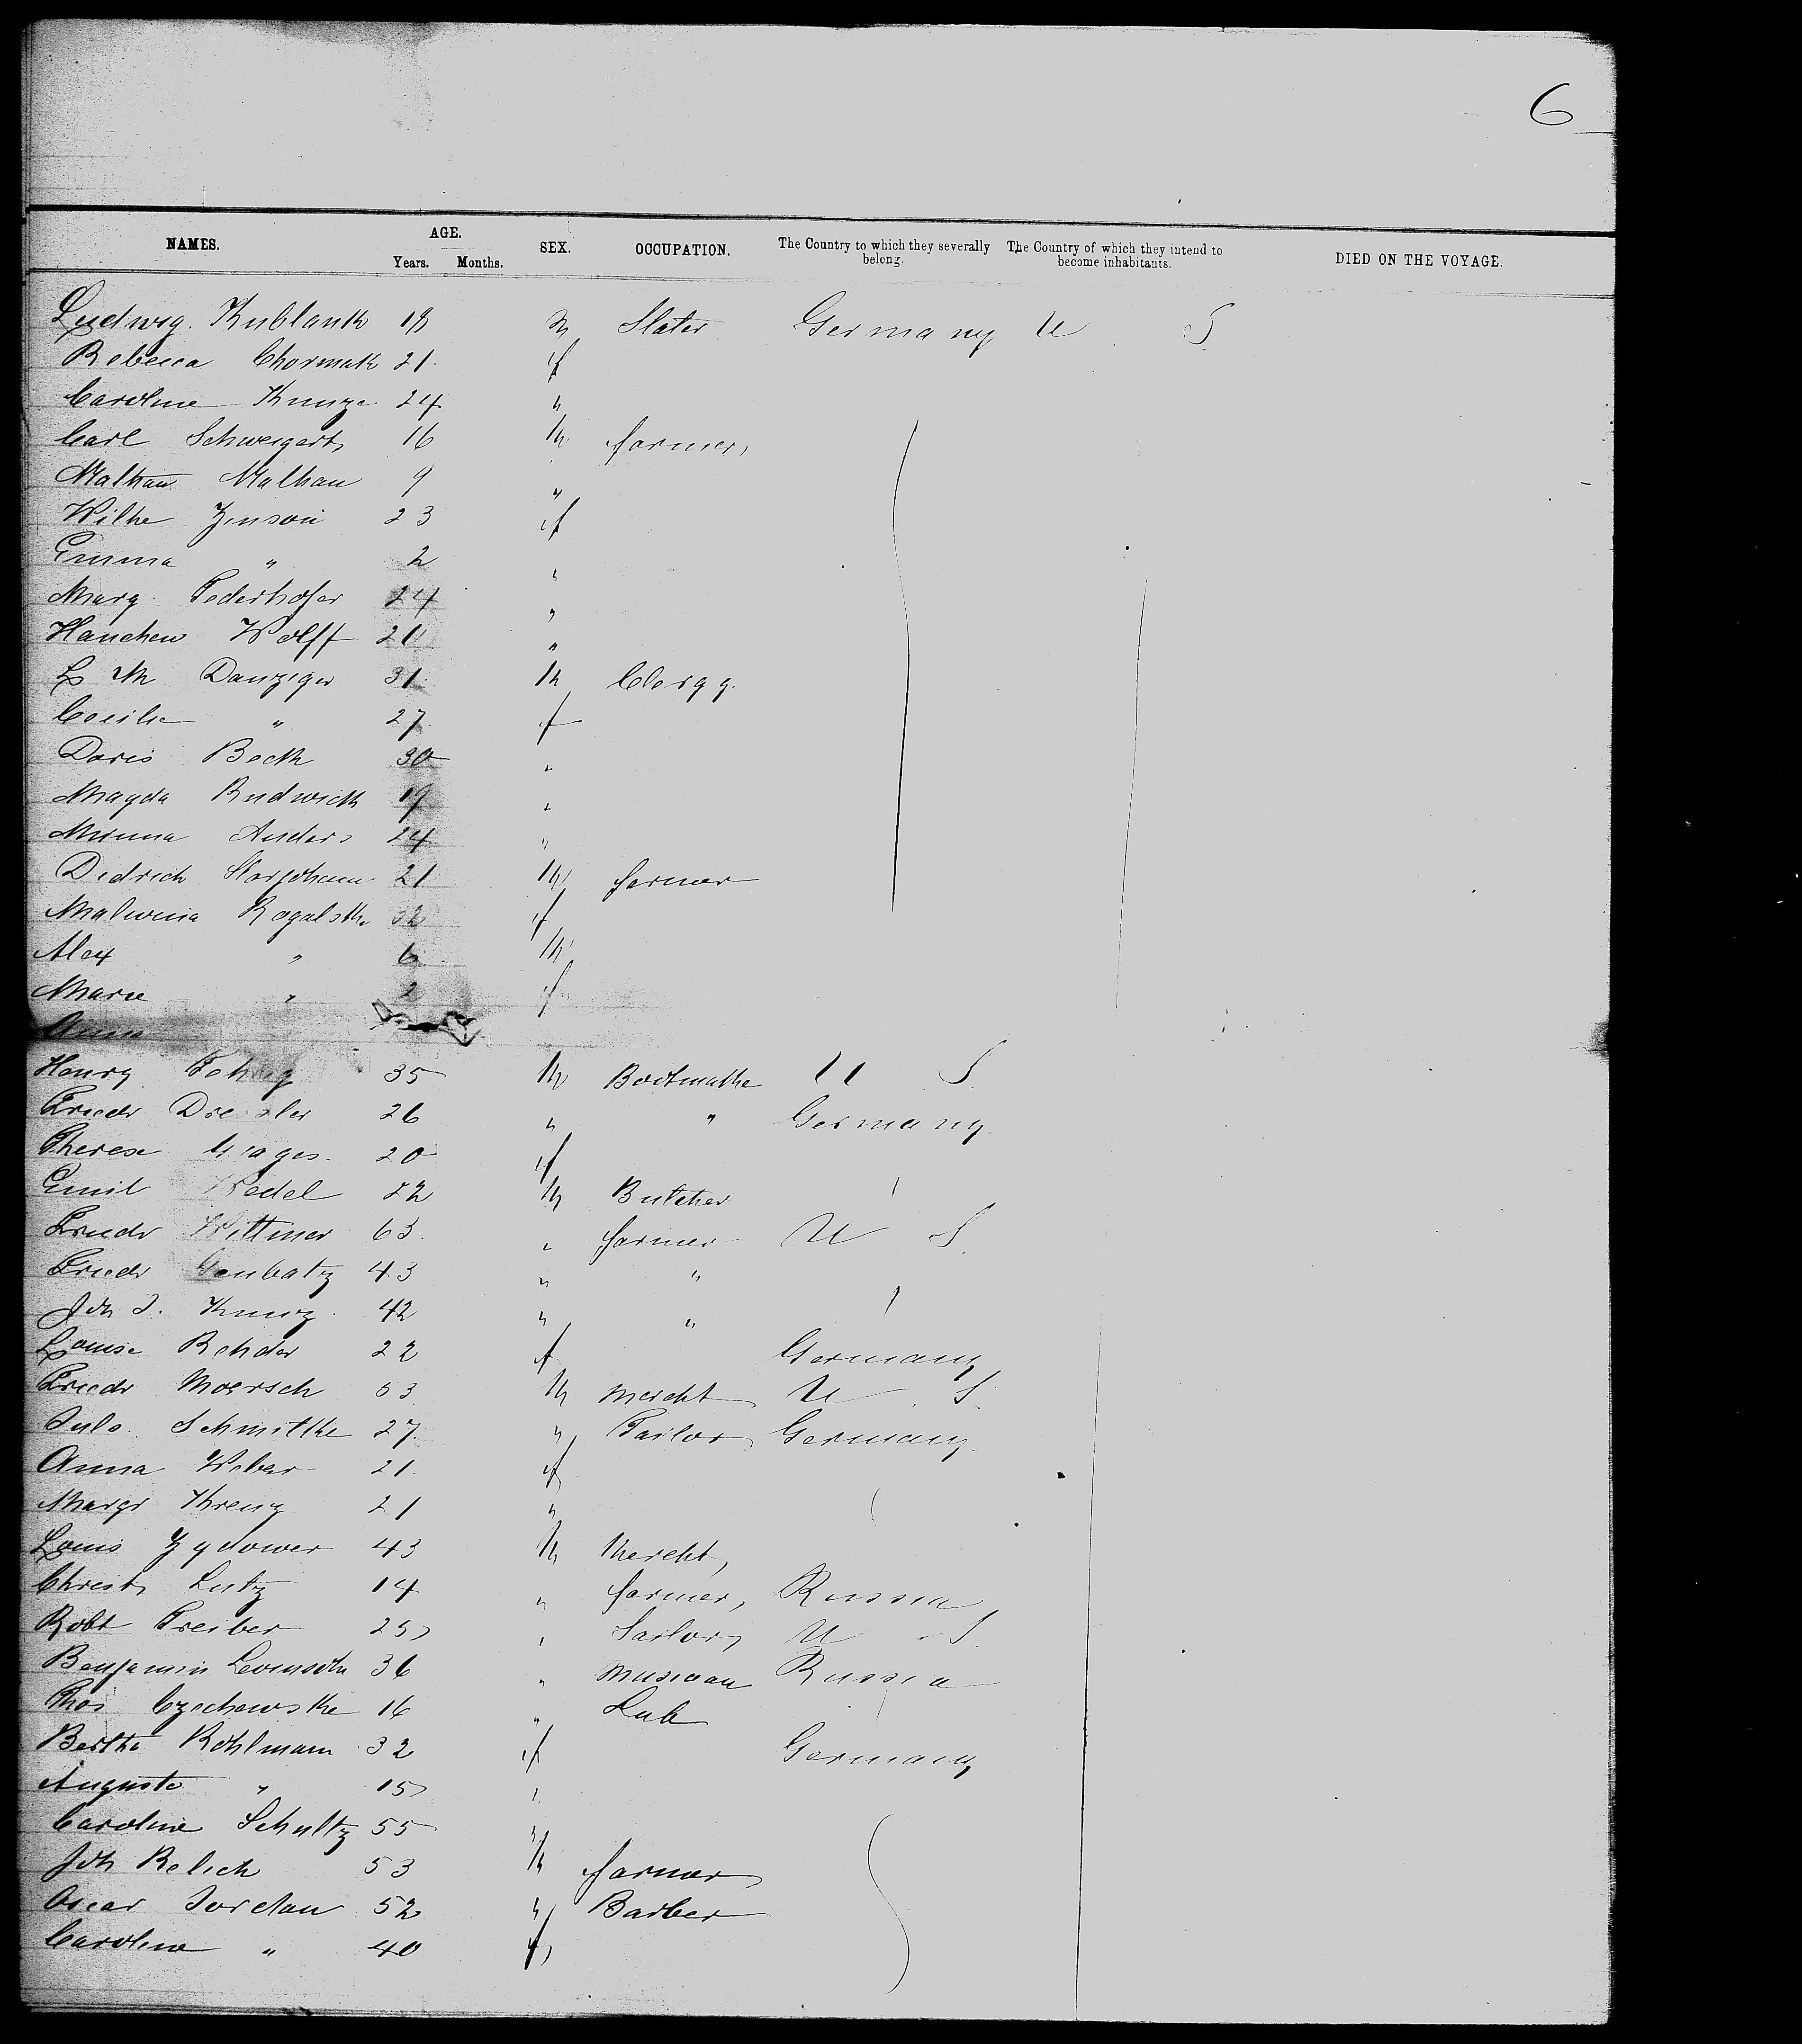 6
NAMES. AGE. Years. Months. SEX. OCCUPATION. The Country to which they severally belong. The Country of which they intend to become inhabitants. DIED ON THE VOYAGE.
Ludwig. Kublank 18 m Slater Germany U S
Rebecca Chormak 21 f
Caroline Kunze 24 "
Carl Schweigert 16 M farmer
Malhau 9 "
Wilhe 23 f
Emma " 2 "
Marg. Federhofer 24 "
Hanchen Wolff 21 "
L M Danziger 31 M Clergy.
Cecilie " 27 f
Doris Beck 30 "
Magda Rudwick 19 "
Minna Anders 24 "
Didrich 21 M farmer
Malwina Rogalska 32 f
Alex " 6 M
Marie " 2 f
Anna
Henry 35 M Bootmake U S.
Friedr 26 " " Germany.
Therese 20 f
Emil Wedel 22 M Butcher
Friedr Wittmer 63 " farmer U S.
Friedr 43 " "
Joh J. 42 " "
Louise Rehder 22 f Germany
Friedr Moersch 53 M mercht U S
Juls. Schmitke 27 " Tailor Germany.
Anna Weber 21 f
Margr Kreuz 21 "
Louis Zydower 43 M Mercht,
Christ Lutz 14 " farmer, Russia
Robt Treiber 25 " Sailor U S.
Benjamin 36 " Musician Russia
Thos Czechowske 16 " Lab
Bertha Kohlmann 32 f Germany
Auguste " 15 "
Caroline Schultz 55 "
Joh Relich 53 M farmer
Oscar Jordan 52 " Barber
Caroline " 40 f